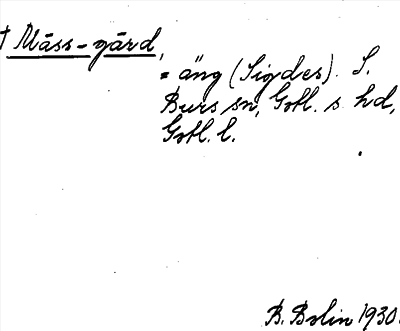 † Mäss-gärd,
= äng (Sigdes). S.
Burs sn, Gotl. s. hd,
Gotl. l.
B. Bolin 1930.